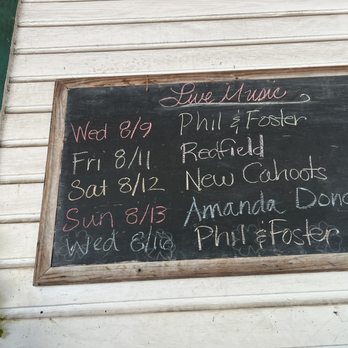 Live Music
Wed 8/9 Phil & Foster
Fri 8/11 Redfield
Sat 8/12 New Cahoots
Sun 8/13 Amanda
Wed Phil & Foster